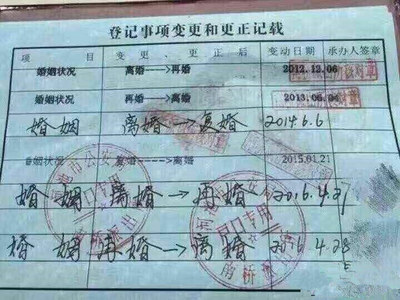 登记事项变更和更正记载
项 目 变更、更正后 变动日期 承办人签章
婚姻状况 离婚---->再婚 2012.12.06
婚姻状况 离婚---->再婚 2013.06.04
婚姻 离婚→复婚 2014.6.6
婚姻状况 ---->离婚 2015.01.21
婚姻 离婚→再婚 2016.4.21
婚姻 再婚→离婚 2016.4.28
户口专用
户口专用